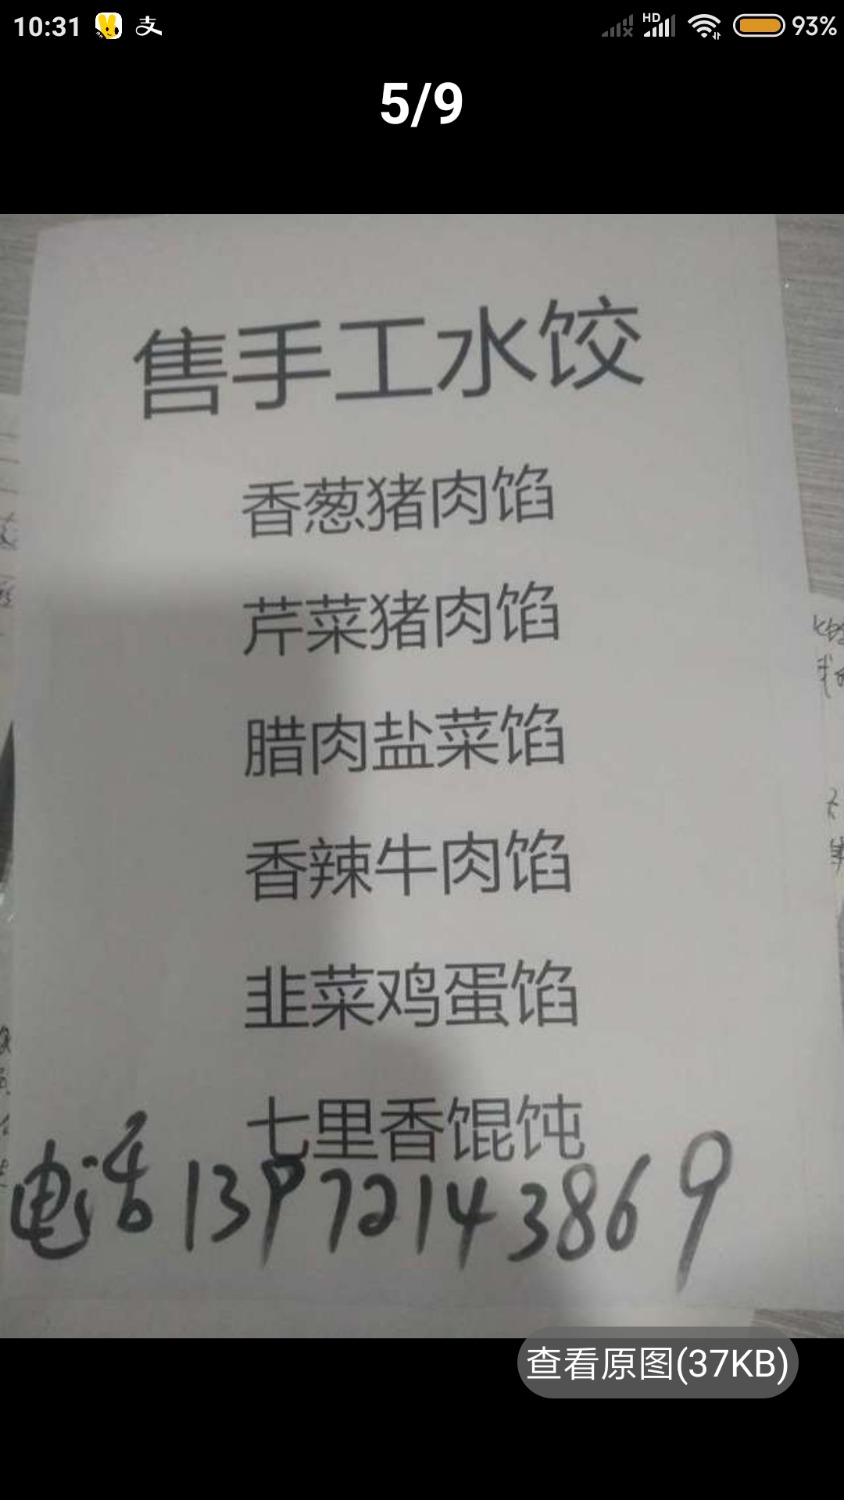 10:31 支 HD 93%
5/9
售手工水饺
香葱猪肉馅
芹菜猪肉馅
腊肉盐菜馅
香辣牛肉馅
韭菜鸡蛋馅
七里香馄饨
电话13972143869
查看原图(37KB)